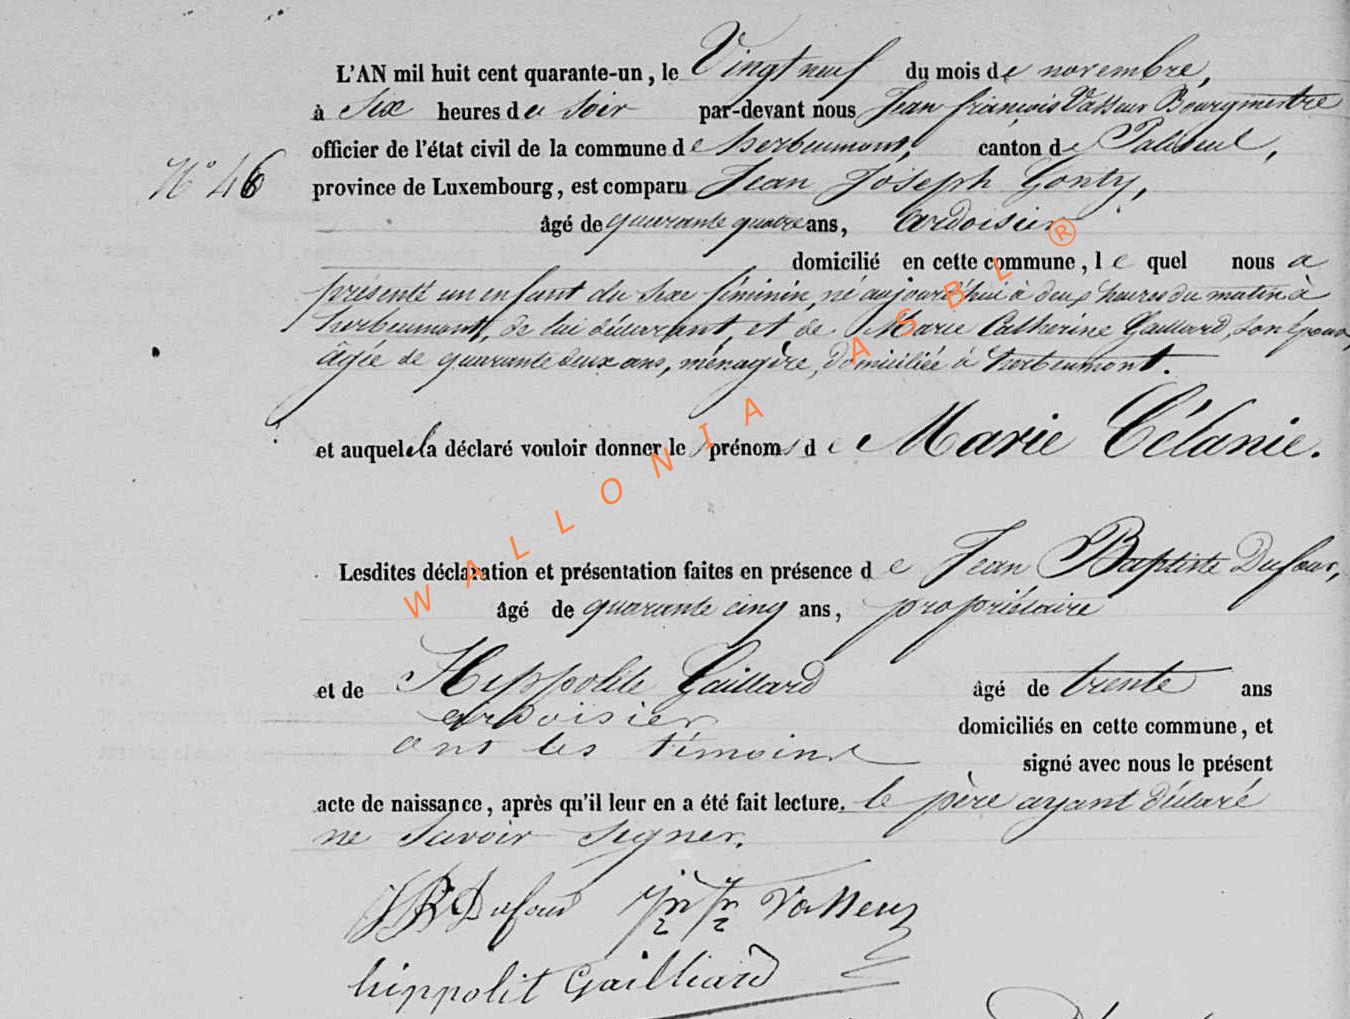 L'AN mil huit cent quarante-un, le Vingt neuf du mois de novembre,
à Six heures du soir par-devant nous Jean françois Vasseur Bourgmestre
officier de l'état civil de la commune de herbeumont, canton de Paliseul,
N° 46 province de Luxembourg, est comparu Jean Joseph Gonty,
âgé de quarante quatre ans, ardoisier
domicilié en cette commune, le quel nous a
présenté un enfant du sexe féminin, né aujourd'hui à deux heures du matin à
herbeumont, de lui déclarant, et de Marie Catherine Gaillard, son épouse,
âgée de quarante deux ans, ménagère, domiciliée à herbeumont.
et auquel il a déclaré vouloir donner les prénoms de Marie Célanie.
Lesdites déclaration et présentation faites en présence de Jean Baptiste Dufour,
âgé de quarante cinq ans, propriétaire
et de Hippolite Gaillard âgé de trente ans
ardoisier domiciliés en cette commune, et
ont les témoins signé avec nous le présent
acte de naissance, après qu'il leur en a été fait lecture. le père ayant déclaré
ne savoir signer.
JB Dufour Jn fr Vasseur
hippolit Gailliard
WALLONIA ASBL ®